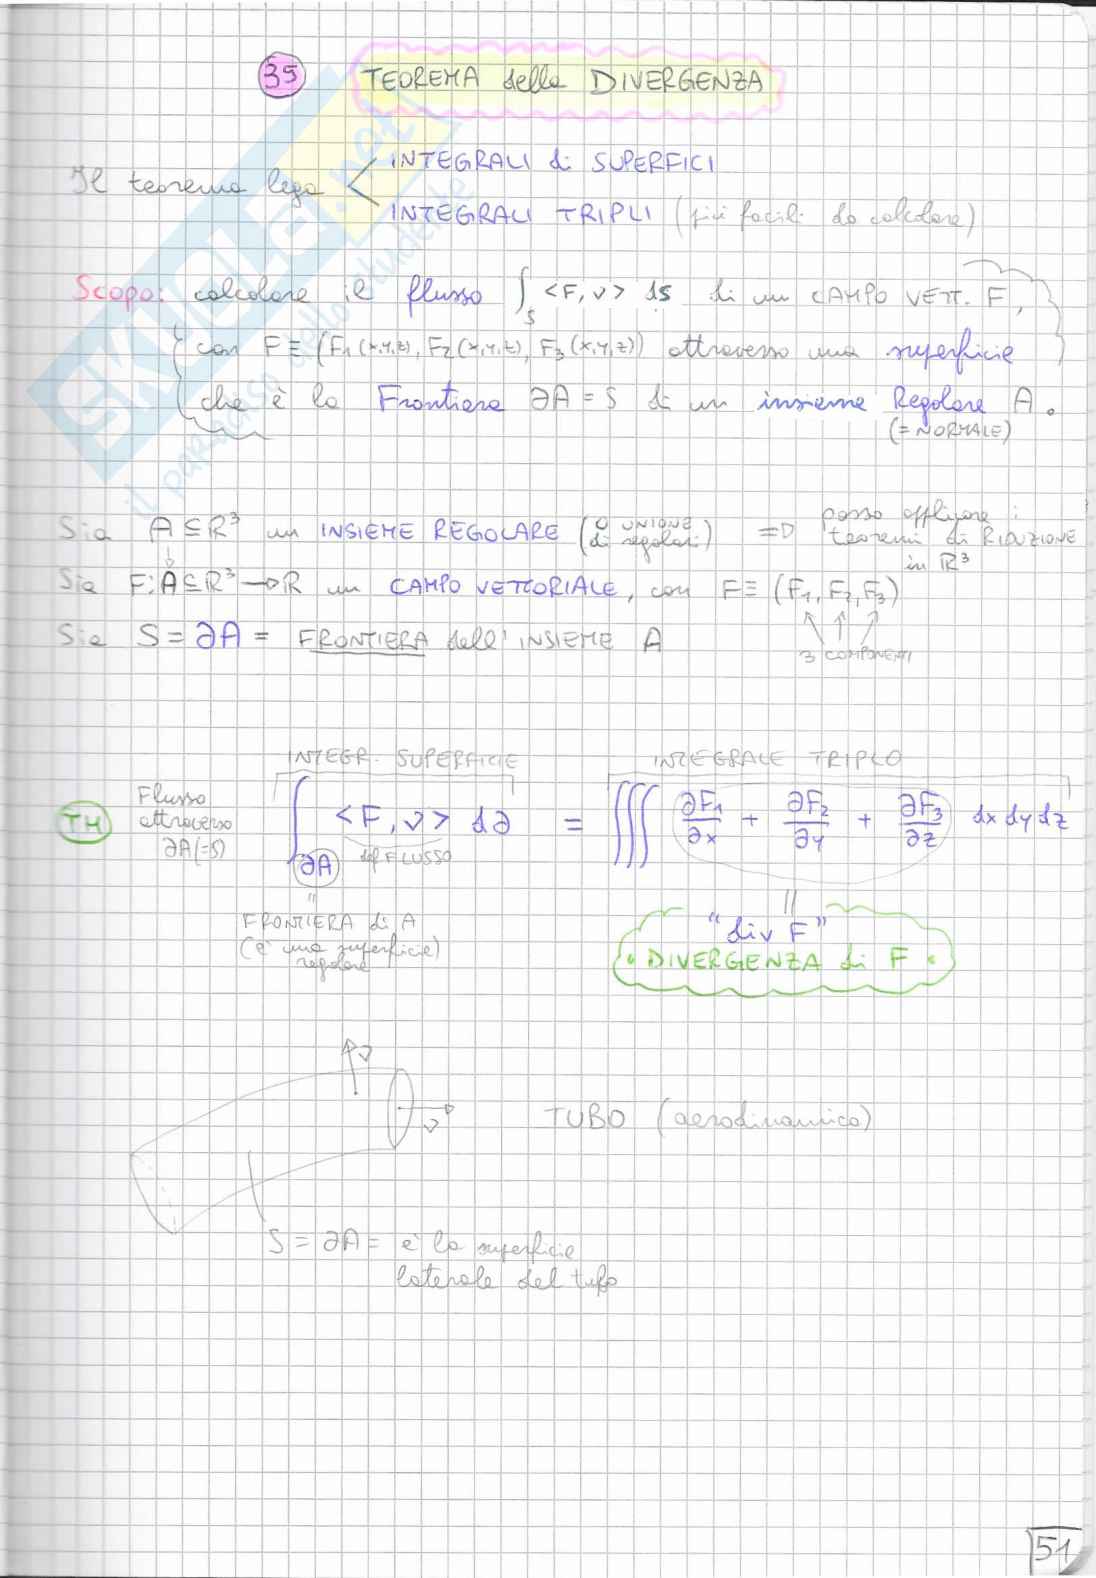 35 TEOREMA della DIVERGENZA
Il teorema lega < INTEGRALI di SUPERFICI
INTEGRALI TRIPLI (più facili da calcolare)
Scopo: calcolare il flusso ∫_S <F, ν> ds di un CAMPO VETT. F,
con F ≡ (F₁(x,y,z), F₂(x,y,z), F₃(x,y,z)) attraverso una superficie
che è la Frontiera ∂A = S di un insieme Regolare A.
(= NORMALE)
Sia A ⊆ R³ un INSIEME REGOLARE (o UNIONE di regolari) => posso applicare: teoremi di RIDUZIONE in R³
Sia F: A ⊆ R³ → R un CAMPO VETTORIALE, con F ≡ (F₁, F₂, F₃)
3 COMPONENTI
Sia S = ∂A = FRONTIERA dell'INSIEME A
INTEGR. SUPERFICIE INTEGRALE TRIPLO
TH Flusso attraverso ∂A (=S) ∫_∂A <F, ν> d∂ = ∭ ∂F₁/∂x + ∂F₂/∂y + ∂F₃/∂z dx dy dz
FLUSSO
"
FRONTIERA di A
(è una superficie)
regolare
||
"div F"
• DIVERGENZA di F •
ν
ν
TUBO (aerodinamico)
S = ∂A = è la superficie
laterale del tubo
51
SKUOLA.net
il paradiso dello studente